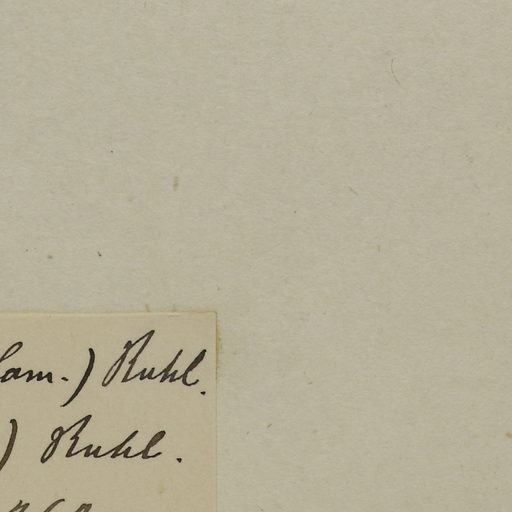 Lam.) Ruhl.
) Ruhl.